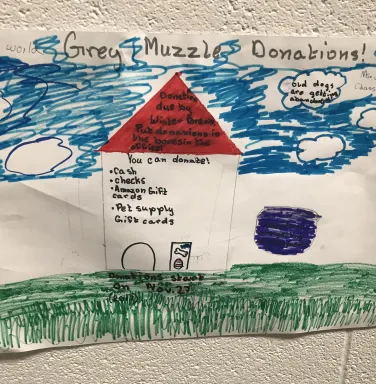 world
Grey Muzzle Donations!
old dogs
are getting
abandoned!
Donations
due by
Winter Break
Put donations in
the boxes in the
office!
You can donate!
•Cash
•checks
•Amazon Gift
cards
•Pet supply
Gift cards
Donations start
on Nov. 27